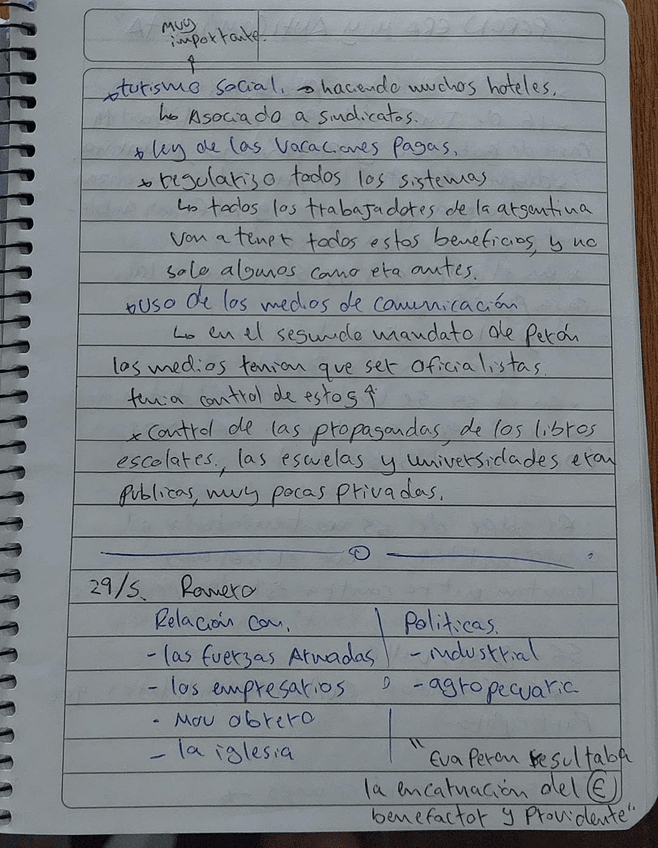 MUY
importante.
↑
* turismo social. → haciendo muchos hoteles.
↳ Asociado a sindicatos.
* ley de las vacaciones pagas.
* regularizo todos los sistemas
↳ todos los trabajadores de la argentina
van a tener todos estos beneficios, y no
solo algunos como era antes.
* uso de los medios de comunicación
↳ en el segundo mandato de Perón
los medios tenian que ser oficialistas.
tenia control de estos ↑
* control de las propagandas, de los libros
escolares, las escuelas y universidades eran
publicas, muy pocas privadas.
29/5. Romero
Relación con. | Politicas.
- las fuerzas Armadas | - industrial
- los empresarios - agropecuaria
- Mov obrero
- la iglesia
"Eva Peron resultaba
la encarnación del Ⓔ
benefactor y Providente"